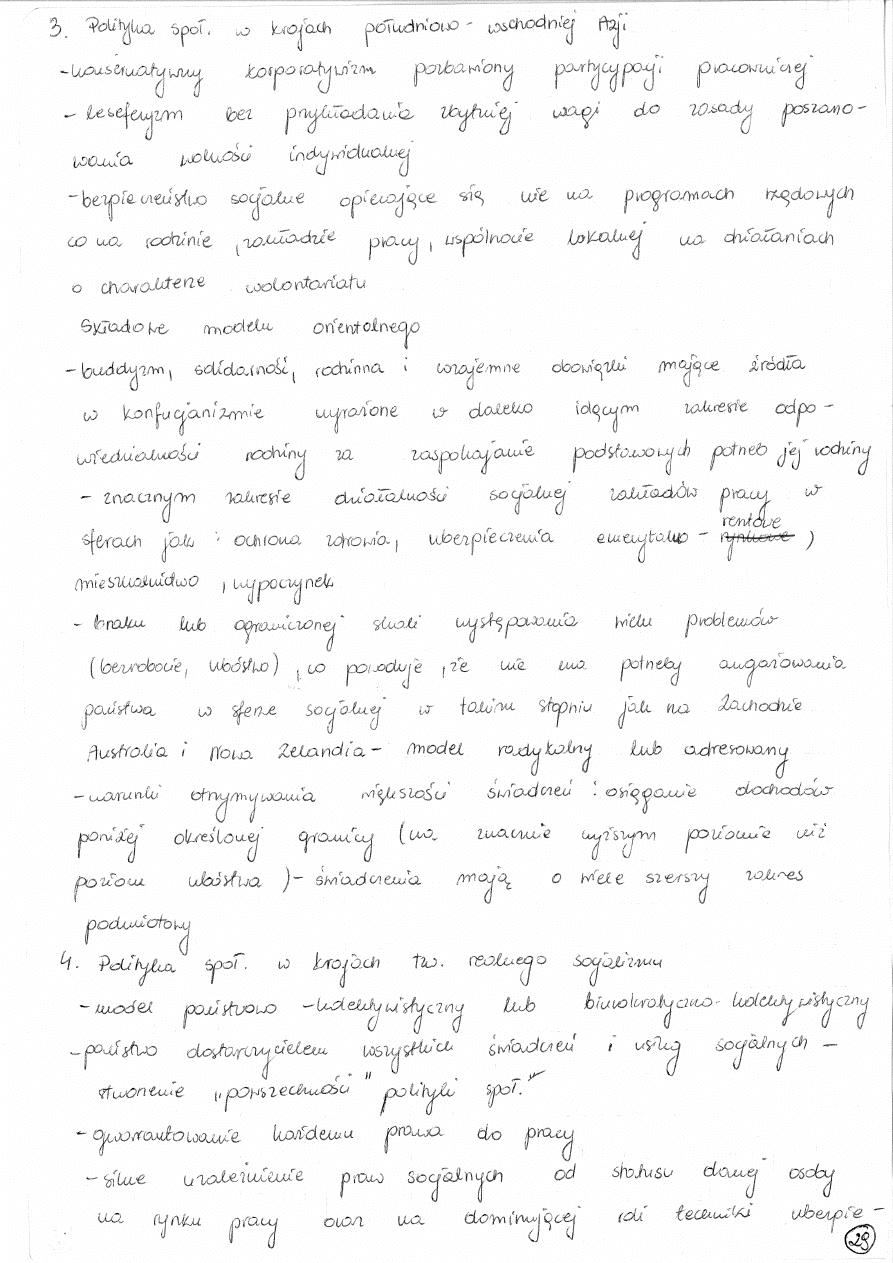 3. Polityka społ. w krajach południowo-wschodniej Azji
- konserwatywny korporatywizm pozbawiony partycypacji pracowniczej
- leseferyzm bez przykładania zbytniej wagi do zasady poszano-
wania wolności indywidualnej
- bezpieczeństwo socjalne opierające się nie na programach rządowych
co na rodzinie, zakładzie pracy, wspólnocie lokalnej na działaniach
o charakterze wolontariatu
Składowe modelu orientalnego
- buddyzm, solidarność, rodzinna i wzajemne obowiązki mające źródła
w konfucjanizmie wyrażone w daleko idącym zakresie odpo-
wiedzialności rodziny za zaspokajanie podstawowych potrzeb jej rodziny
- znacznym zakresie działalności socjalnej zakładów pracy w
sferach jak: ochrona zdrowia, ubezpieczenia emerytalno - rentowe,
mieszkalnictwo, wypoczynek
- braku lub ograniczonej skali występowania wielu problemów
(bezrobocie, ubóstwo), co powoduje, że nie ma potrzeby angażowania
państwa w sferze socjalnej w takim stopniu jak na Zachodzie
Australia i Nowa Zelandia - model radykalny lub adresowany
- warunki otrzymywania większości świadczeń: osiąganie dochodów
poniżej określonej granicy (na znacznie wyższym poziomie niż
poziom ubóstwa) - świadczenia mają o wiele szerszy zakres
podmiotowy
4. Polityka społ. w krajach tzw. realnego socjalizmu
- model państwowo - kolektywistyczny lub biurokratyczno-kolektywistyczny
- państwo dostarczycielem wszystkich świadczeń i usług socjalnych -
stworzenie "powszechności" polityki społ."
- gwarantowanie każdemu prawa do pracy
- silne uzależnienie praw socjalnych od statusu danej osoby
na rynku pracy oraz na dominującej roli techniki ubezpie-
29